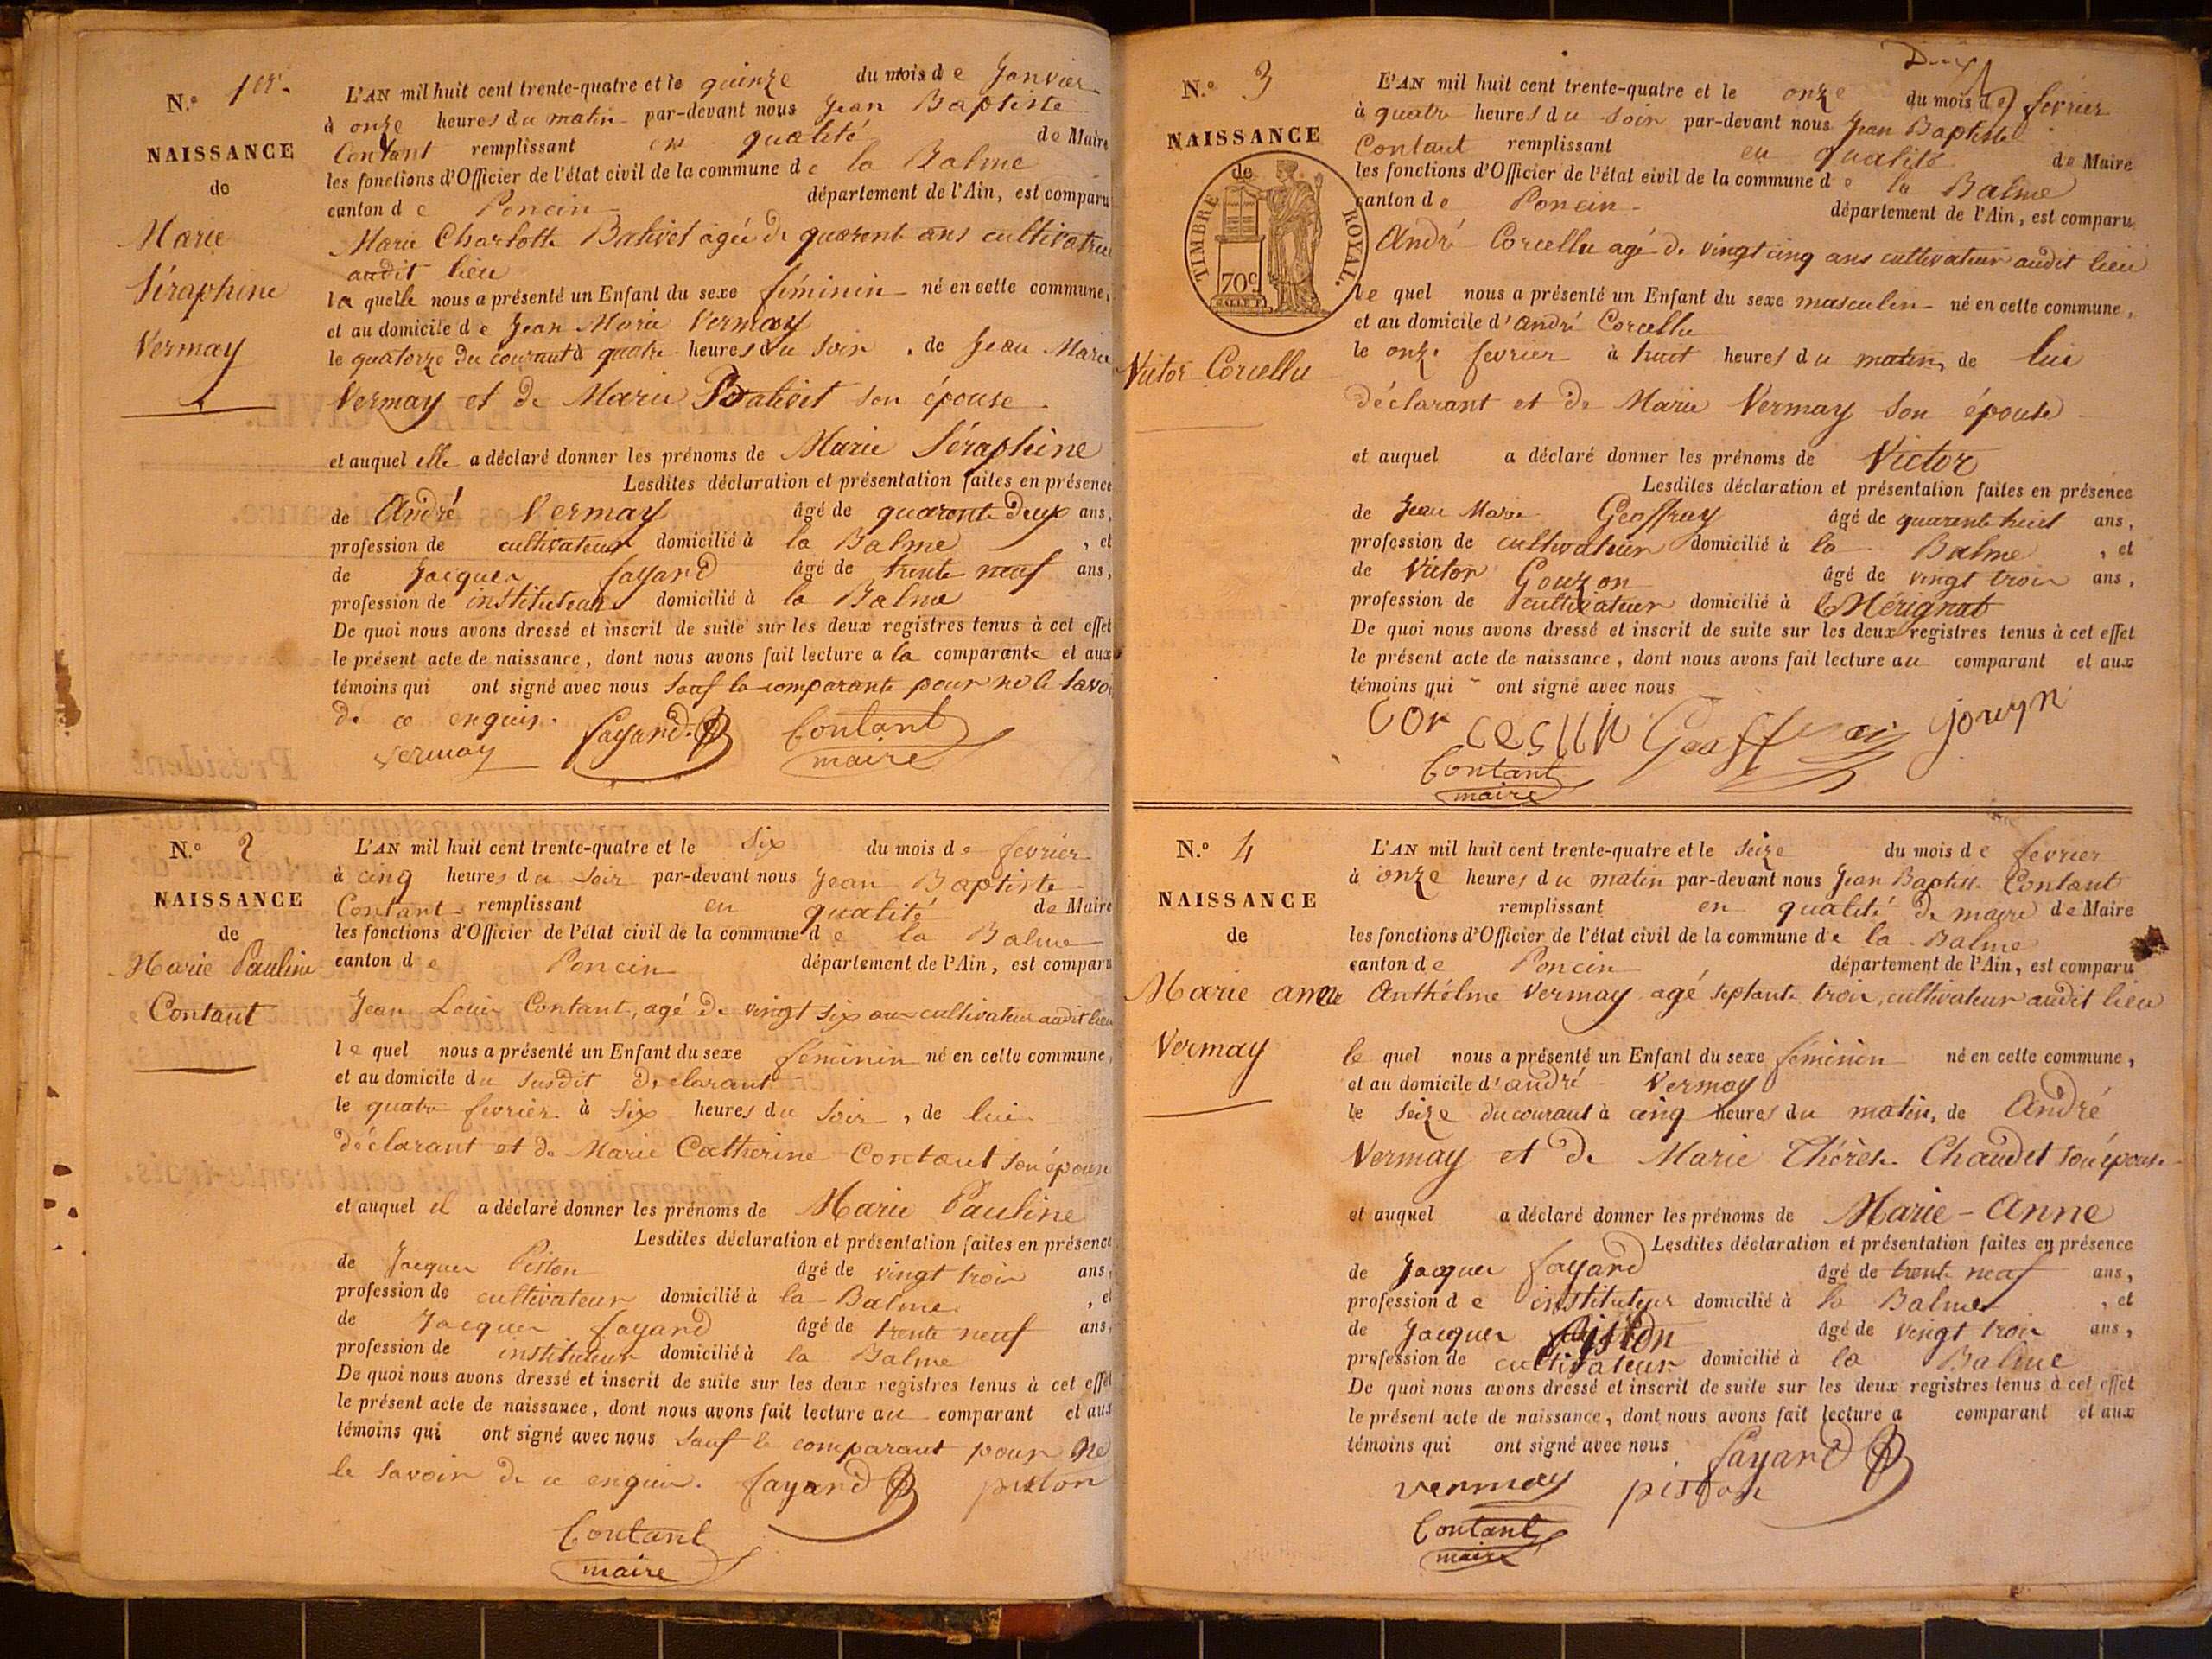 N.o 1er.
NAISSANCE
de
Marie
Séraphine
Vermay
L'AN mil huit cent trente-quatre et le quinze du mois de Janvier
à onze heures du matin par-devant nous Jean Baptiste
Contant remplissant en qualité de Maire
les fonctions d'Officier de l'état civil de la commune de la Balme
canton de Poncin département de l'Ain, est comparu
Marie Charlotte Balivet agée de quarent ans cultivatrice
audit lieu
la quelle nous a présenté un Enfant du sexe féminin né en cette commune,
et au domicile de Jean Marie Vermay
le quatorze du courant à quatre heures du soir, de Jean Marie
Vermay et de Marie Balivet son épouse
et auquel elle a déclaré donner les prénoms de Marie Séraphine
Lesdites déclaration et présentation faites en présence
de André Vermay âgé de quarante deux ans,
profession de cultivateur domicilié à la Balme, et
de Jacques fayard âgé de trente neuf ans,
profession de instituteur domicilié à la Balme
De quoi nous avons dressé et inscrit de suite sur les deux registres tenus à cet effet
le présent acte de naissance, dont nous avons fait lecture a la comparante et aux
témoins qui ont signé avec nous sauf la comparante pour ne le savoi
de ce enquis.
vermay fayard Contant
maire
N.o 2
NAISSANCE
de
Marie Pauline
Contant
L'AN mil huit cent trente-quatre et le six du mois de fevrier
à cinq heures du soir par-devant nous Jean Baptiste
Contant remplissant en qualité de Maire
les fonctions d'Officier de l'état civil de la commune de la Balme
canton de Poncin département de l'Ain, est comparu
Jean Louis Contant, agé de vingt six ans cultivateur audit lieu
le quel nous a présenté un Enfant du sexe féminin né en cette commune,
et au domicile du susdit déclarant
le quatre fevrier à six heures du soir, de lui
déclarant et de Marie Catherine Contant son épouse
et auquel il a déclaré donner les prénoms de Marie Pauline
Lesdites déclaration et présentation faites en présence
de Jacques Piston âgé de vingt trois ans,
profession de cultivateur domicilié à la Balme, et
de Jacques fayard âgé de trente neuf ans,
profession de instituteur domicilié à la Balme
De quoi nous avons dressé et inscrit de suite sur les deux registres tenus à cet effet
le présent acte de naissance, dont nous avons fait lecture au comparant et aux
témoins qui ont signé avec nous sauf le comparant pour ne
le savoir de ce enquis. fayard piston
Contant
maire
N.o 3
NAISSANCE
de
TIMBRE ROYAL.
70c
Victor Corcellu
L'AN mil huit cent trente-quatre et le onze du mois de fevrier
à quatre heures du soir par-devant nous Jean Baptiste
Contant remplissant en qualité de Maire
les fonctions d'Officier de l'état civil de la commune de la Balme
canton de Poncin département de l'Ain, est comparu
André Corcellu agé de vingt cinq ans cultivateur audit lieu
le quel nous a présenté un Enfant du sexe masculin né en cette commune,
et au domicile d'andré Corcellu
le onze fevrier à huit heures du matin, de lui
déclarant et de Marie Vermay son épouse
et auquel a déclaré donner les prénoms de Victor
Lesdites déclaration et présentation faites en présence
de Jean Marie Geoffray âgé de quarante huit ans,
profession de cultivateur domicilié à la Balme, et
de Victor Gouzon âgé de vingt trois ans,
profession de cultivateur domicilié à Mérignat
De quoi nous avons dressé et inscrit de suite sur les deux registres tenus à cet effet
le présent acte de naissance, dont nous avons fait lecture au comparant et aux
témoins qui ont signé avec nous
Contant
maire
N.o 4
NAISSANCE
de
Marie anne
Vermay
L'AN mil huit cent trente-quatre et le seize du mois de fevrier
à onze heures du matin par-devant nous Jean Baptiste Contant
remplissant en qualité de maire de Maire
les fonctions d'Officier de l'état civil de la commune de la Balme
canton de Poncin département de l'Ain, est comparu
Anthelme Vermay agé septante trois, cultivateur audit lieu
le quel nous a présenté un Enfant du sexe féminin né en cette commune,
et au domicile d'andré Vermay
le seize du courant à cinq heures du matin, de André
Vermay et de Marie Thérèse Chaudet son épouse
et auquel a déclaré donner les prénoms de Marie-Anne
Lesdites déclaration et présentation faites en présence
de Jacques fayard âgé de trente neuf ans,
profession de instituteur domicilié à la Balme, et
de Jacques piston âgé de vingt trois ans,
profession de cultivateur domicilié à la Balme
De quoi nous avons dressé et inscrit de suite sur les deux registres tenus à cet effet
le présent acte de naissance, dont nous avons fait lecture a comparant et aux
témoins qui ont signé avec nous fayard
vermay piston
Contant
maire